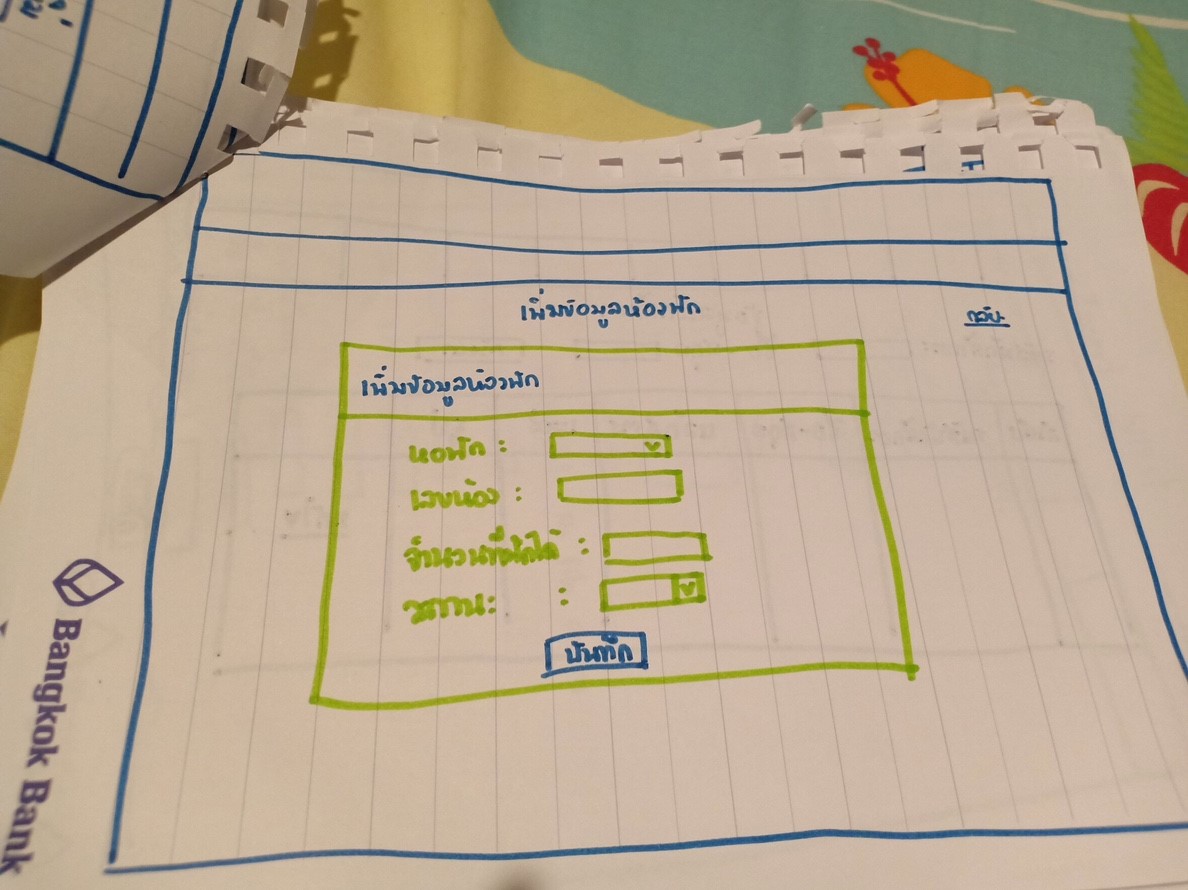 เพิ่มข้อมูลห้องพัก
กลับ
เพิ่มข้อมูลห้องพัก
หอพัก :
เลขห้อง :
จำนวนที่พักได้ :
สถานะ :
บันทึก
Bangkok Bank